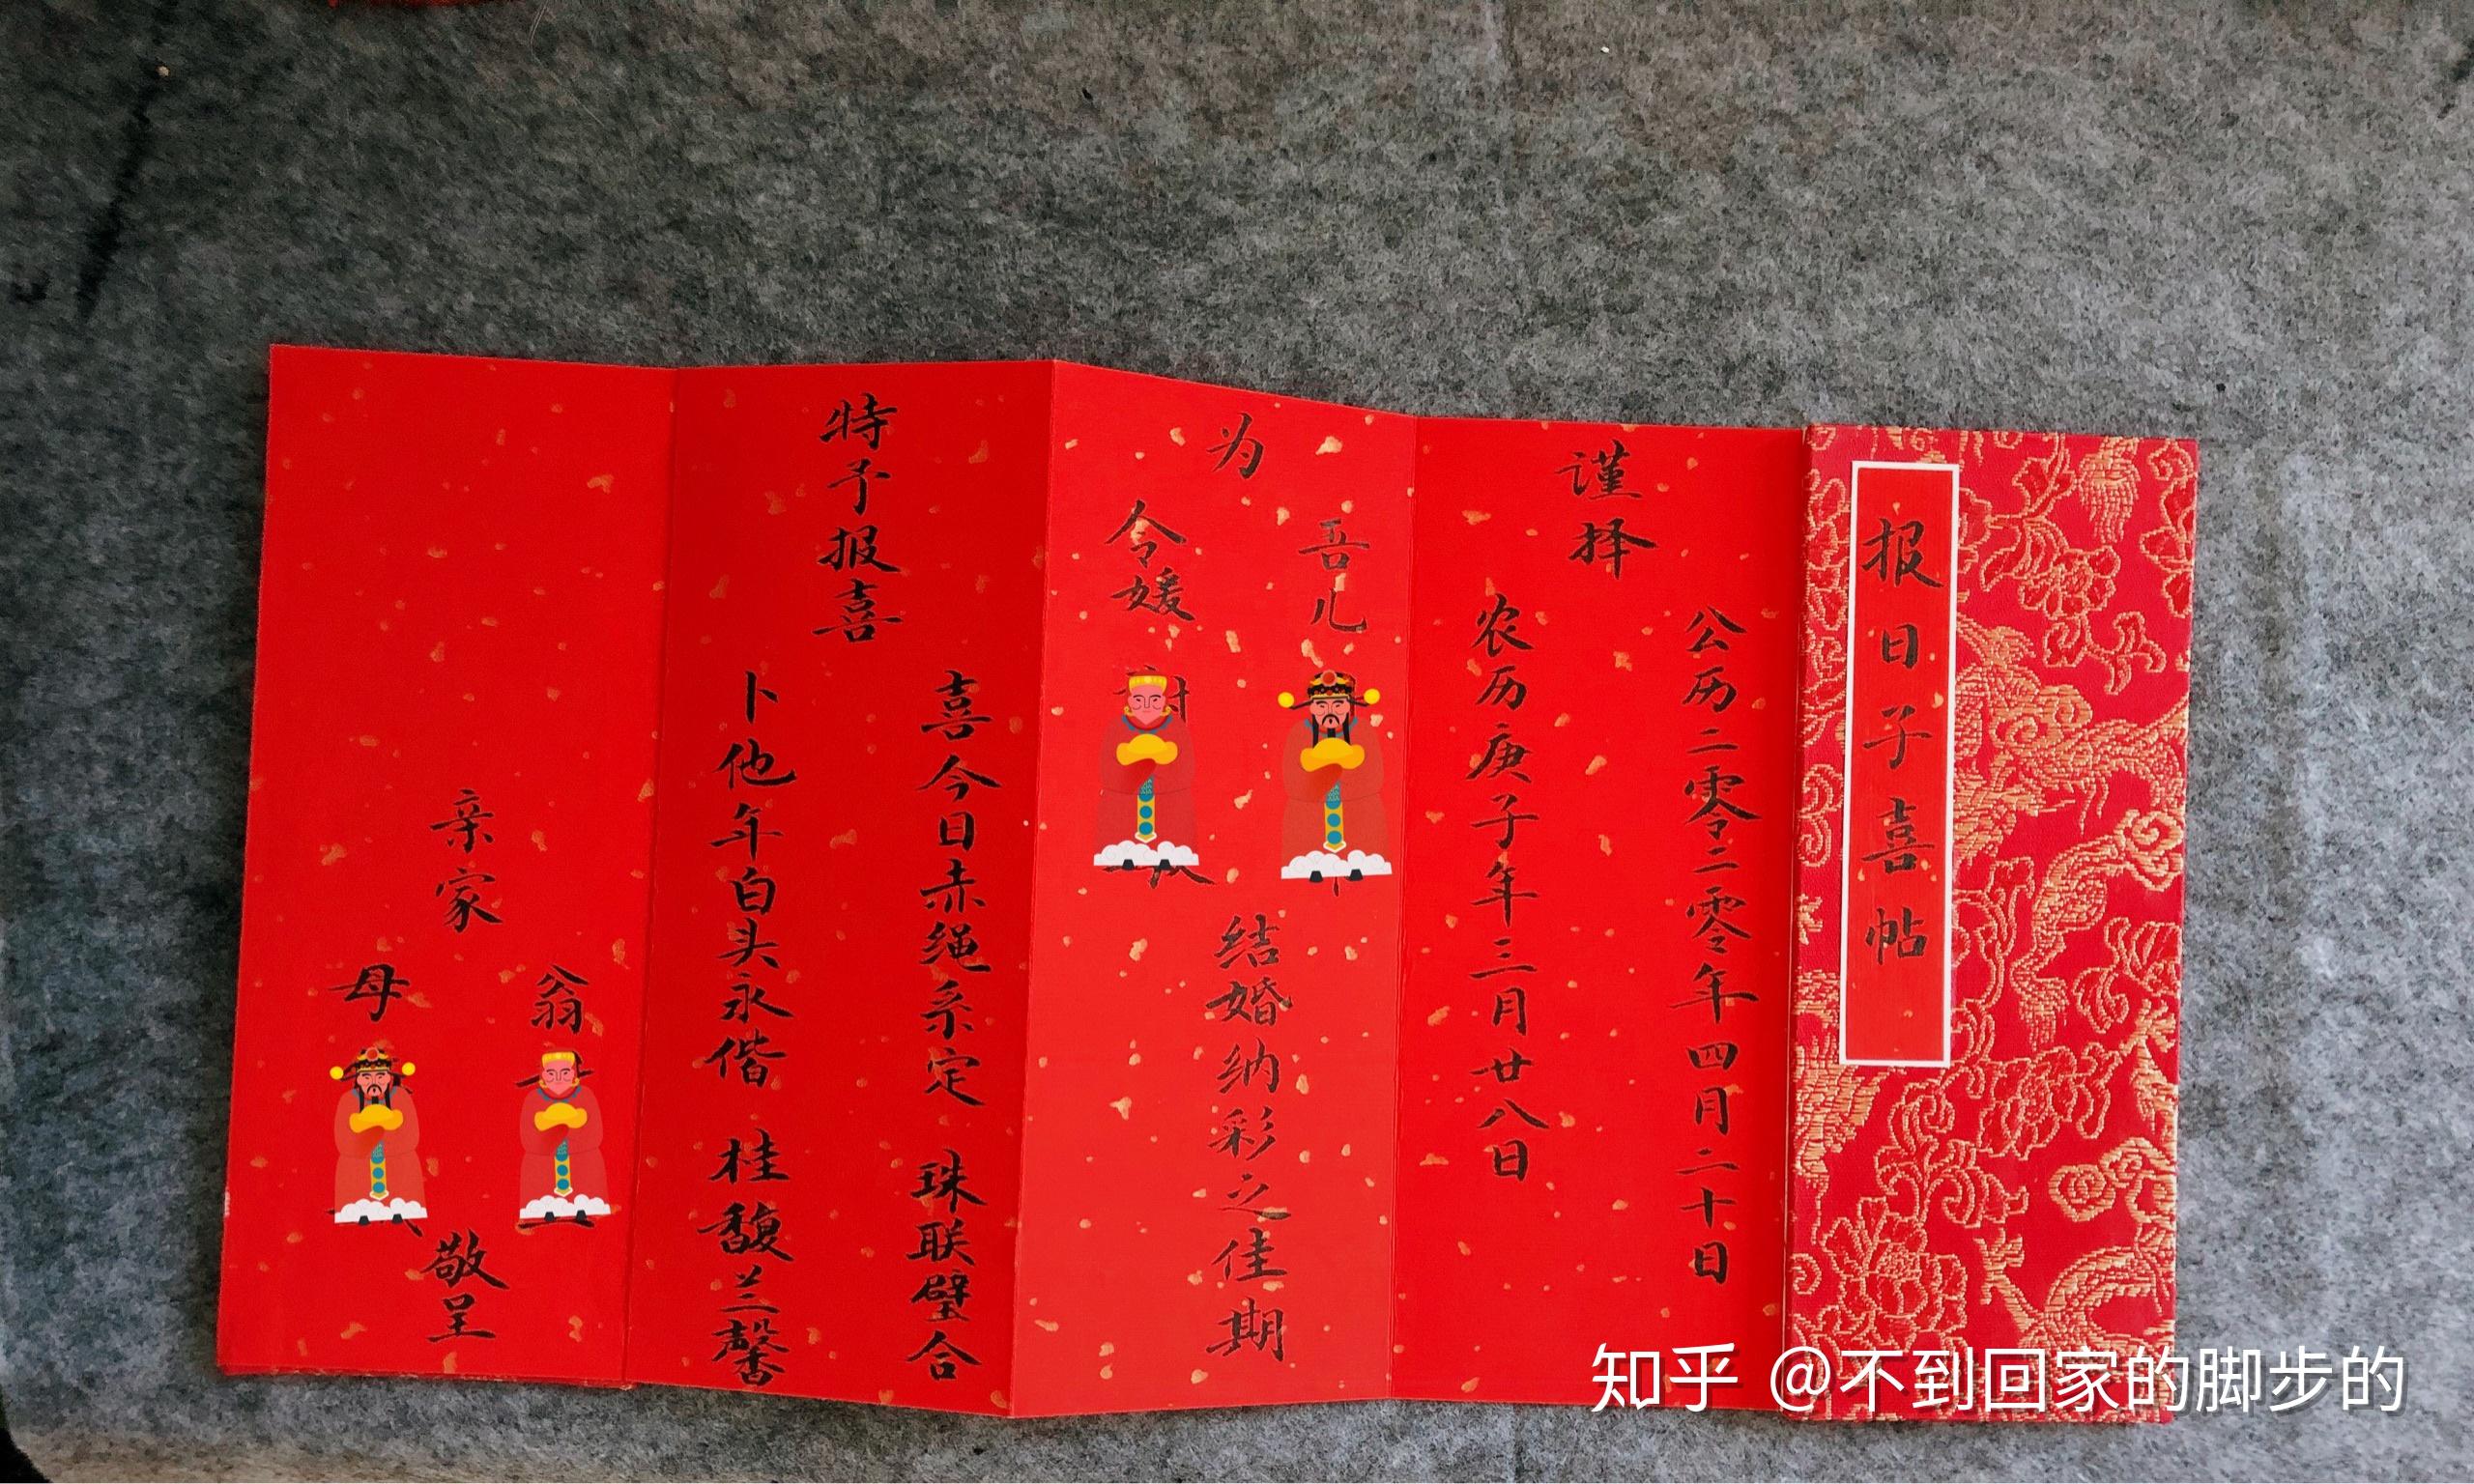 报日子喜帖
谨择
公历二零二零年四月二十日
农历庚子年三月廿八日
为
吾儿
令媛
结婚纳彩之佳期
特予报喜
喜今日赤绳系定 珠联璧合
卜他年白头永偕 桂馥兰馨
亲家
翁
母
敬呈
知乎 @不到回家的脚步的